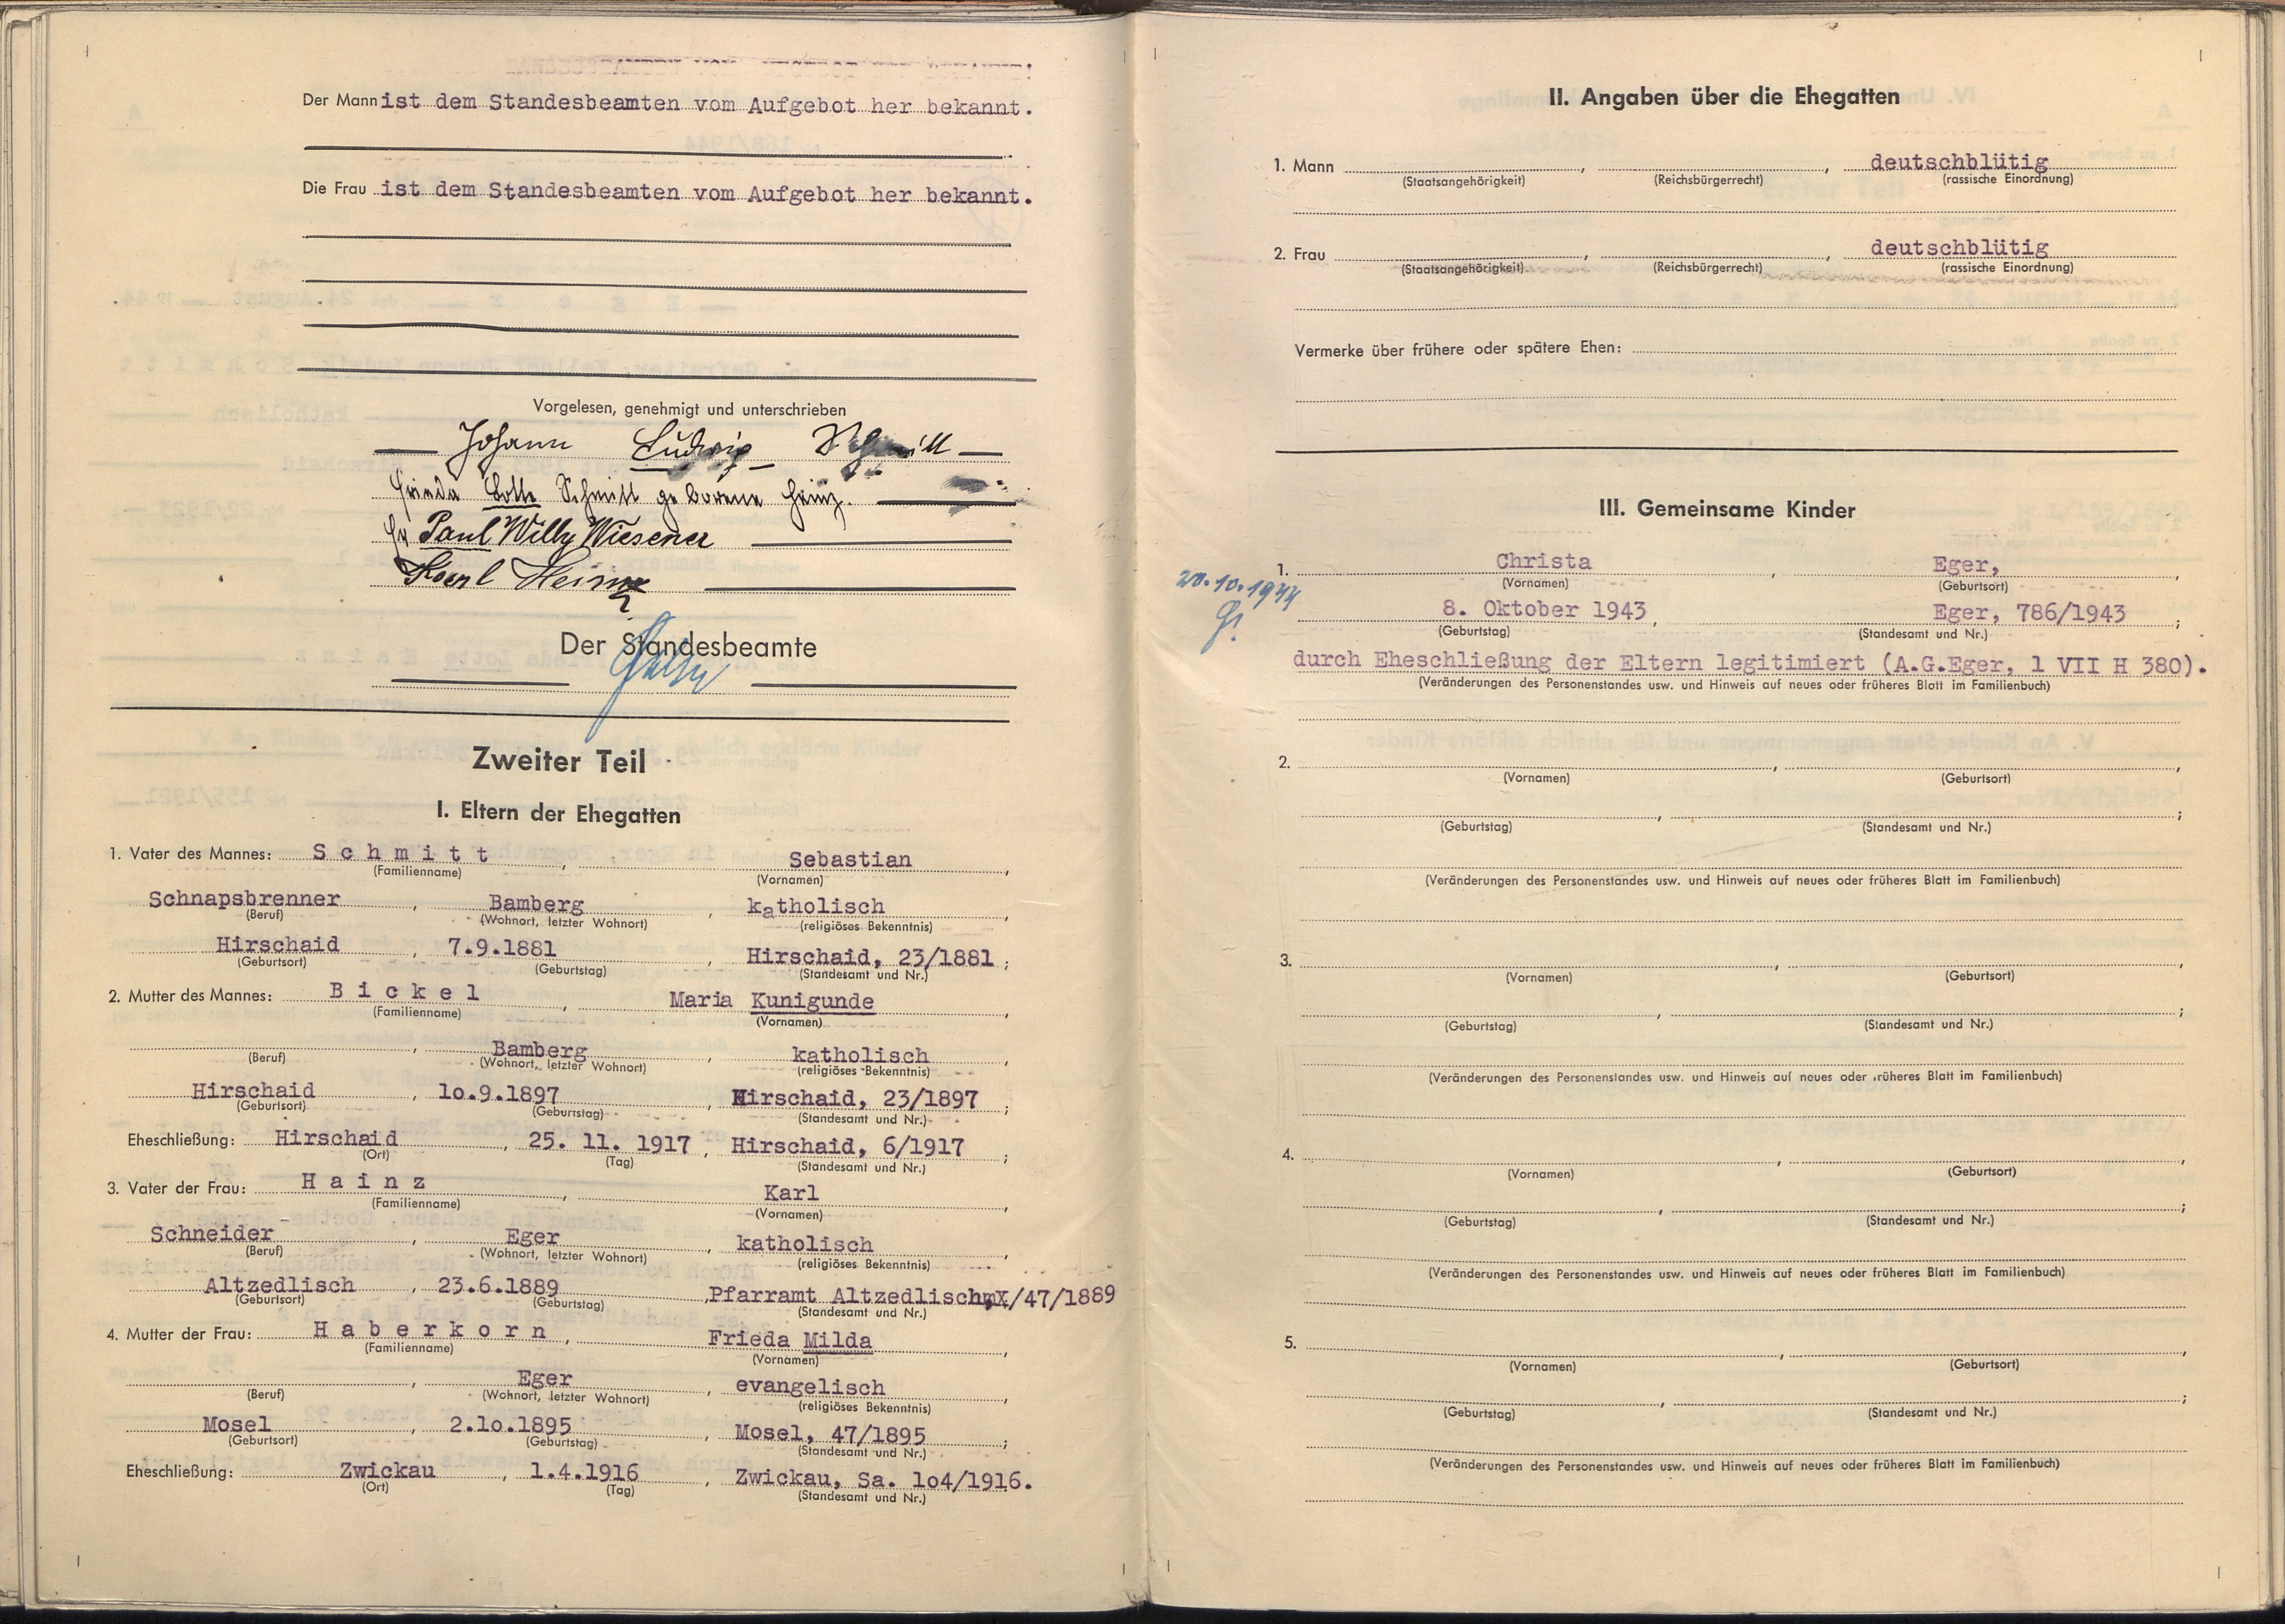 Der Mann ist dem Standesbeamten vom Aufgebot her bekannt.
Die Frau ist dem Standesbeamten vom Aufgebot her bekannt.
Vorgelesen, genehmigt und unterschrieben
Johann Ludwig Schmitt
Frieda Lotte Schmitt geborene Hainz.
Paul Willy Wiesener
Karl Heinz
Der Standesbeamte
Zweiter Teil
I. Eltern der Ehegatten
1. Vater des Mannes: Schmitt, Sebastian,
(Familienname) (Vornamen)
Schnapsbrenner, Bamberg, katholisch,
(Beruf) (Wohnort, letzter Wohnort) (religiöses Bekenntnis)
Hirschaid, 7.9.1881, Hirschaid, 23/1881;
(Geburtsort) (Geburtstag) (Standesamt und Nr.)
2. Mutter des Mannes: Bickel, Maria Kunigunde,
(Familienname) (Vornamen)
, Bamberg, katholisch,
(Beruf) (Wohnort, letzter Wohnort) (religiöses Bekenntnis)
Hirschaid, 10.9.1897, Hirschaid, 23/1897;
(Geburtsort) (Geburtstag) (Standesamt und Nr.)
Eheschließung: Hirschaid, 25. 11. 1917, Hirschaid, 6/1917;
(Ort) (Tag) (Standesamt und Nr.)
3. Vater der Frau: Hainz, Karl,
(Familienname) (Vornamen)
Schneider, Eger, katholisch,
(Beruf) (Wohnort, letzter Wohnort) (religiöses Bekenntnis)
Altzedlisch, 23.6.1889, Pfarramt Altzedlisch /47/1889
(Geburtsort) (Geburtstag) (Standesamt und Nr.)
4. Mutter der Frau: Haberkorn, Frieda Milda,
(Familienname) (Vornamen)
, Eger, evangelisch,
(Beruf) (Wohnort, letzter Wohnort) (religiöses Bekenntnis)
Mosel, 2.10.1895, Mosel, 47/1895;
(Geburtsort) (Geburtstag) (Standesamt und Nr.)
Eheschließung: Zwickau, 1.4.1916, Zwickau, Sa. 104/1916.
(Ort) (Tag) (Standesamt und Nr.)
II. Angaben über die Ehegatten
1. Mann , , deutschblütig
(Staatsangehörigkeit) (Reichsbürgerrecht) (rassische Einordnung)
2. Frau , , deutschblütig
(Staatsangehörigkeit) (Reichsbürgerrecht) (rassische Einordnung)
Vermerke über frühere oder spätere Ehen:
III. Gemeinsame Kinder
1. Christa, Eger,
(Vornamen) (Geburtsort)
20.10.1944
8. Oktober 1943, Eger, 786/1943;
(Geburtstag) (Standesamt und Nr.)
durch Eheschließung der Eltern legitimiert (A.G.Eger, 1 VII H 380).
(Veränderungen des Personenstandes usw. und Hinweis auf neues oder früheres Blatt im Familienbuch)
2. , ,
(Vornamen) (Geburtsort)
, ;
(Geburtstag) (Standesamt und Nr.)
(Veränderungen des Personenstandes usw. und Hinweis auf neues oder früheres Blatt im Familienbuch)
3. , ,
(Vornamen) (Geburtsort)
, ;
(Geburtstag) (Standesamt und Nr.)
(Veränderungen des Personenstandes usw. und Hinweis auf neues oder früheres Blatt im Familienbuch)
4. , ,
(Vornamen) (Geburtsort)
, ;
(Geburtstag) (Standesamt und Nr.)
(Veränderungen des Personenstandes usw. und Hinweis auf neues oder früheres Blatt im Familienbuch)
5. , ,
(Vornamen) (Geburtsort)
, ;
(Geburtstag) (Standesamt und Nr.)
(Veränderungen des Personenstandes usw. und Hinweis auf neues oder früheres Blatt im Familienbuch)